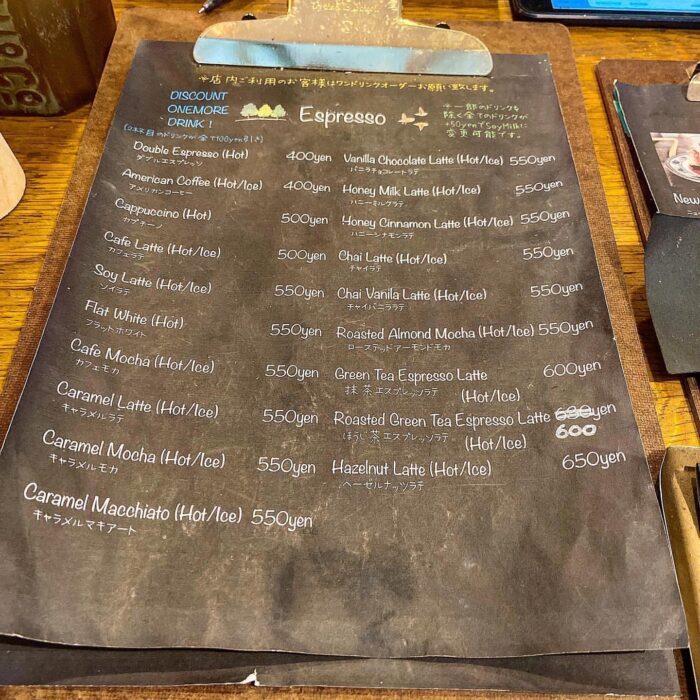 ※店内ご利用のお客様はワンドリンクオーダーお願い致します。
DISCOUNT
ONEMORE
DRINK!
(2本目のドリンクが全て100yen引き)
Espresso
※一部のドリンクを
除く全てのドリンクが
+50yenでSoyMilkに
変更可能です。
Double Espresso (Hot) 400yen
ダブルエスプレッソ
American Coffee (Hot/Ice) 400yen
アメリカンコーヒー
Cappuccino (Hot) 500yen
カプチーノ
Cafe Latte (Hot/Ice) 500yen
カフェラテ
Soy Latte (Hot/Ice) 550yen
ソイラテ
Flat White (Hot) 550yen
フラットホワイト
Cafe Mocha (Hot/Ice) 550yen
カフェモカ
Caramel Latte (Hot/Ice) 550yen
キャラメルラテ
Caramel Mocha (Hot/Ice) 550yen
キャラメルモカ
Caramel Macchiato (Hot/Ice) 550yen
キャラメルマキアート
Vanilla Chocolate Latte (Hot/Ice) 550yen
バニラチョコレートラテ
Honey Milk Latte (Hot/Ice) 550yen
ハニーミルクラテ
Honey Cinnamon Latte (Hot/Ice) 550yen
ハニーシナモンラテ
Chai Latte (Hot/Ice) 550yen
チャイラテ
Chai Vanila Latte (Hot/Ice) 550yen
チャイバニララテ
Roasted Almond Mocha (Hot/Ice) 550yen
ローステッドアーモンドモカ
Green Tea Espresso Latte 600yen
抹茶エスプレッソラテ (Hot/Ice)
Roasted Green Tea Espresso Latte 630yen
ほうじ茶エスプレッソラテ (Hot/Ice) 600
Hazelnut Latte (Hot/Ice) 650yen
ヘーゼルナッツラテ
New